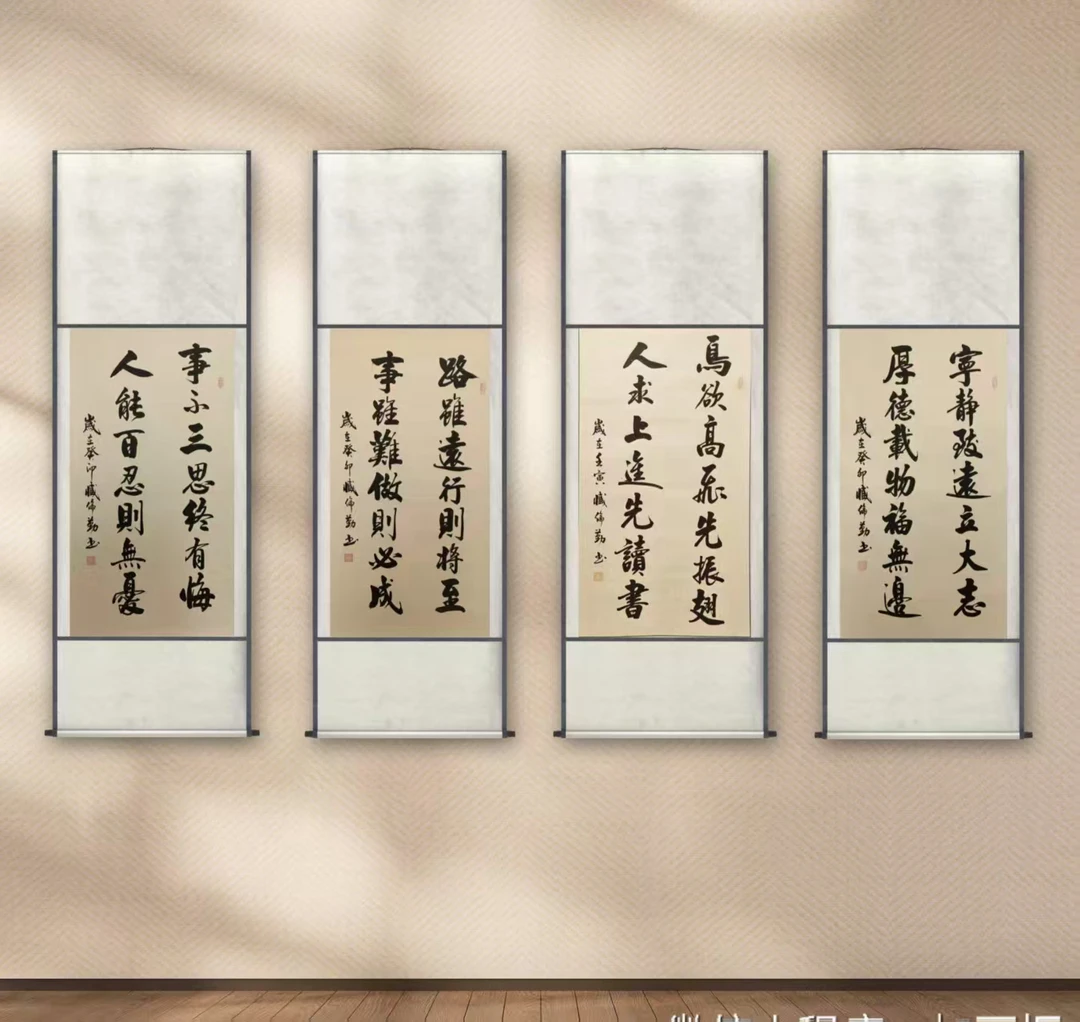 寧靜致遠立大志
厚德載物福無邊
歲在癸卯臧勤书
鳥欲高飛先振翅
人求上進先讀書
歲在壬寅臧勤书
路雖遠行則將至
事雖難做則必成
歲在癸卯臧勤书
事不三思終有悔
人能百忍則無憂
歲在癸卯臧勤书